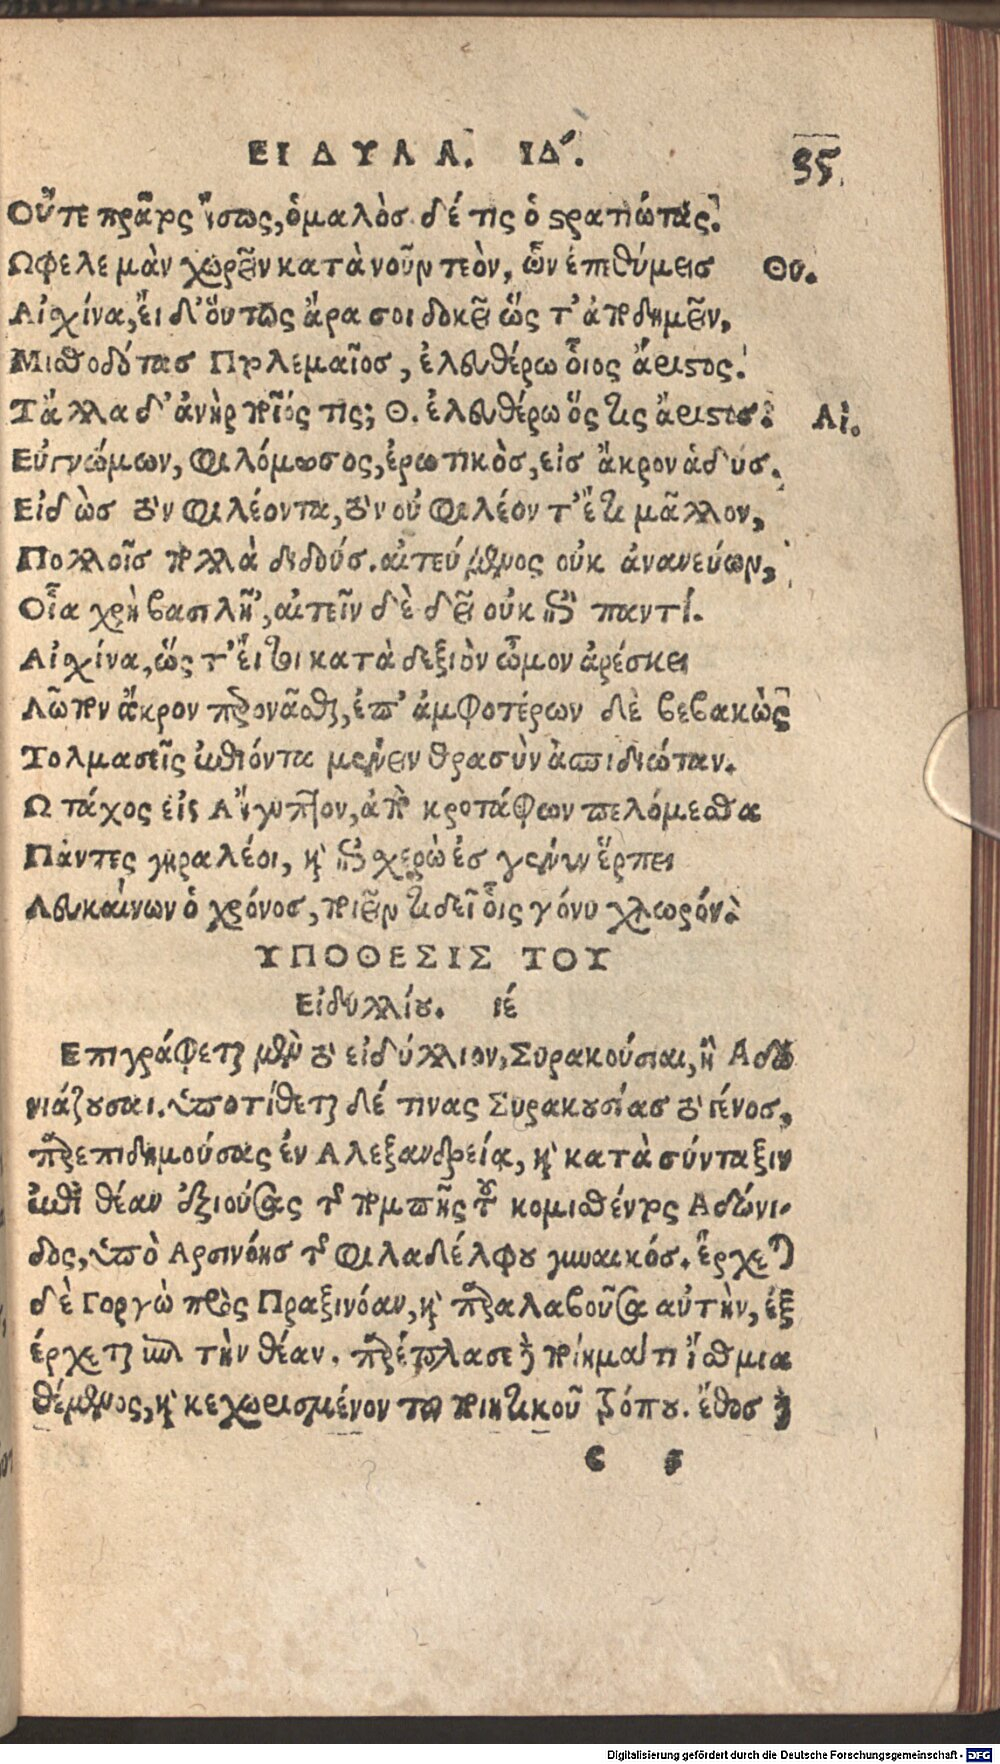 ΕΙΔΥΛΛ. ΙΔ. 35
Οὔτε πρᾶτος ἴσως, ὁμαλὸς δέ τις ὁ στρατιώτας.
Ωφελε μὰν χωρεῖν κατὰ νοῦν τεὸν, ὧν ἐπεθύμεις Θυ.
Αἰσχίνα, εἰ δ' οὕτως ἄρα σοι δοκεῖ ὥς τ' ἀποδημεῖν,
Μισθοδότας Πτολεμαῖος, ἐλευθέρω οἷος ἄριστος.
Τἄλλα δ' ἀνὴρ ποῖός τις; Θ. ἐλευθέρω ὅς τις ἄριστος. Αἰ.
Εὐγνώμων, φιλόμουσος, ἐρωτικὸς, εἰς ἄκρον ἁδύς.
Εἰδὼς τὸν φιλέοντα, τὸν οὐ φιλέοντ' ἔτι μᾶλλον,
Πολλοῖς πολλὰ διδούς. αἰτεύμενος οὐκ ἀνανεύων,
Οἷα χρὴ βασιλῆ', αἰτεῖν δὲ δεῖ οὐκ ἐπὶ παντί.
Αἰσχίνα, ὥς τ' εἴ τοι κατὰ δεξιὸν ὦμον ἀρέσκει
Λῶπον ἄκρον περονᾶσθαι, ἐπ' ἀμφοτέρων δὲ βεβακὼς
Τολμασεῖς ἐπιόντα μένειν θρασὺν ἀσπιδιώταν.
Ω τάχος εἰς Αἴγυπτον, ἀπὸ κροτάφων πελόμεσθα
Πάντες γηραλέοι, καὶ ἐπισχερὼ ἐς γένυν ἕρπει
Λευκαίνων ὁ χρόνος, ποιεῖν τι δεῖ οἷς γόνυ χλωρόν.
ΥΠΟΘΕΣΙΣ ΤΟΥ
Εἰδυλλίου. ιέ
Επιγράφεται μὲν τὸ εἰδύλλιον, Συρακούσιαι, ἢ Αδω
νιάζουσαι. ὑποτίθεται δέ τινας Συρακουσίας τὸ γένος,
παρεπιδημούσας ἐν Αλεξανδρείᾳ, καὶ κατὰ σύνταξιν
ἐπὶ θέαν ἐξιούσας τῆς πομπῆς τοῦ κομισθέντος Αδώνι-
δος, ὑπὸ Αρσινόης τῆς Φιλαδέλφου γυναικός. ἔρχεται
δὲ Γοργὼ πρὸς Πραξινόαν, καὶ παραλαβοῦσα αὐτὴν, ἐξ
έρχεται ἐπὶ τὴν θέαν. παρέπλασε δὲ ποίημά τι ἴσθμια
θέμενος, καὶ κεχωρισμένον τοῦ ποιητικοῦ τρόπου. ἔθος δὲ
ε 5
Digitalisierung gefördert durch die Deutsche Forschungsgemeinschaft - DFG